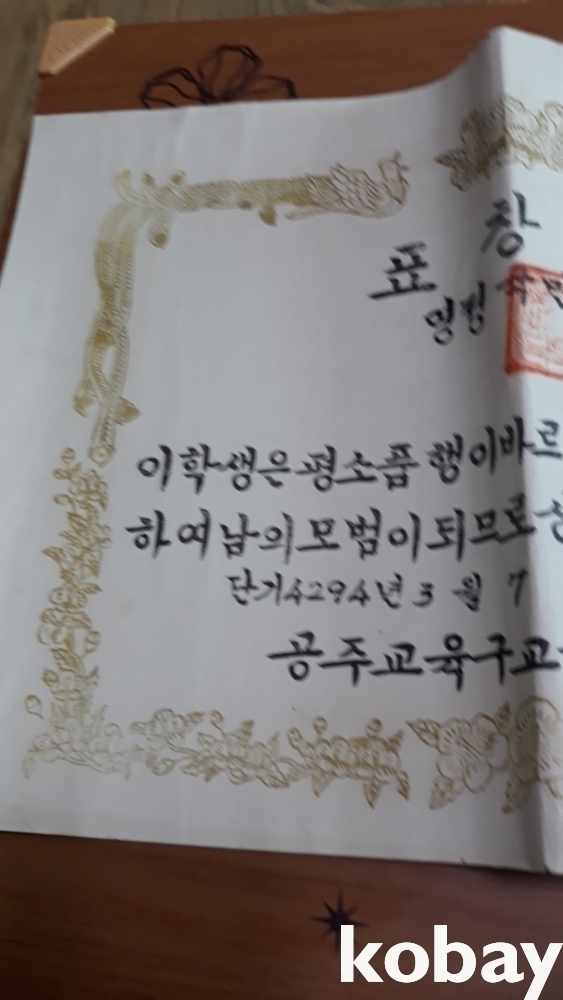 표 창
영정국민
이 학생은 평소 품행이 바르
하여 남의 모범이 되므로
단기 4294년 3월 7
공주교육구교
kobay